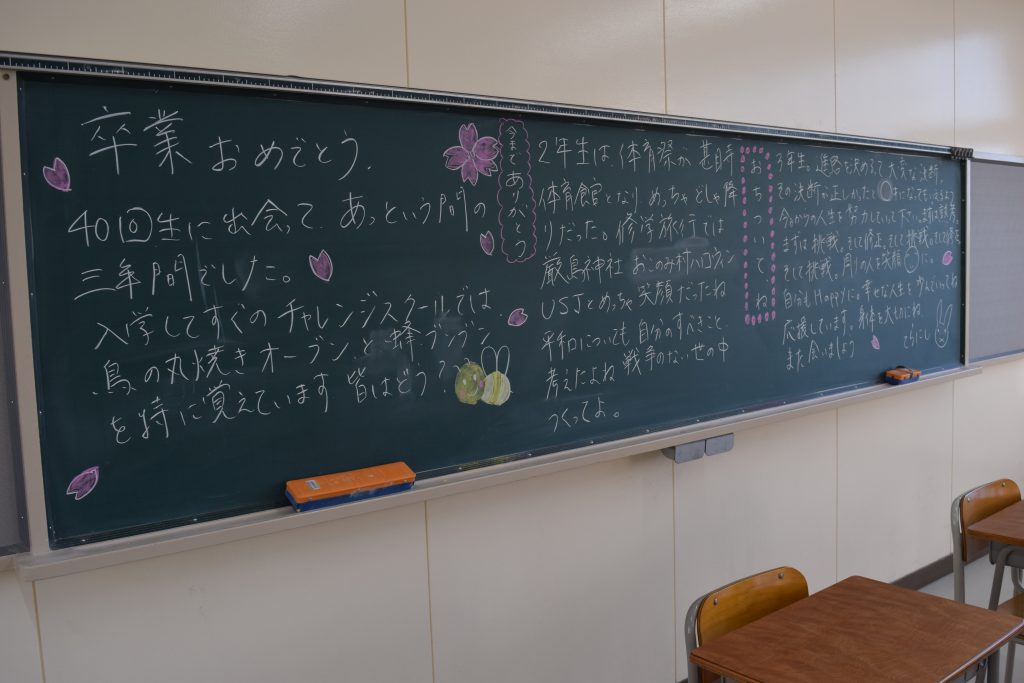 卒業 おめでとう.
40回生に出会って あっという間の
三年間でした。
入学してすぐの チャレンジスクールでは
鳥の丸焼きオーブンと 蜂ブンブン
を特に覚えています 皆はどう?
今まで ありがとう
2年生は 体育祭が
体育館となり めっちゃ どしゃ降
りだった。修学旅行では
厳島神社 おこのみ村 ハロウィン
USJとめっちゃ 笑顔だったね
平和についても 自分のすべきこと
考えたよね 戦争のない世の中
つくってよ。
おちついてね
3年生。進路を決めるって 大変な決断
その決断が正しかった
まずは 挑戦。そして修正。そして 挑戦。
そして挑戦。周りの人を笑顔に。
自分もHappyに。幸せな人生を 歩んでいってね
応援しています。身体を大切にね
また 会いましょう